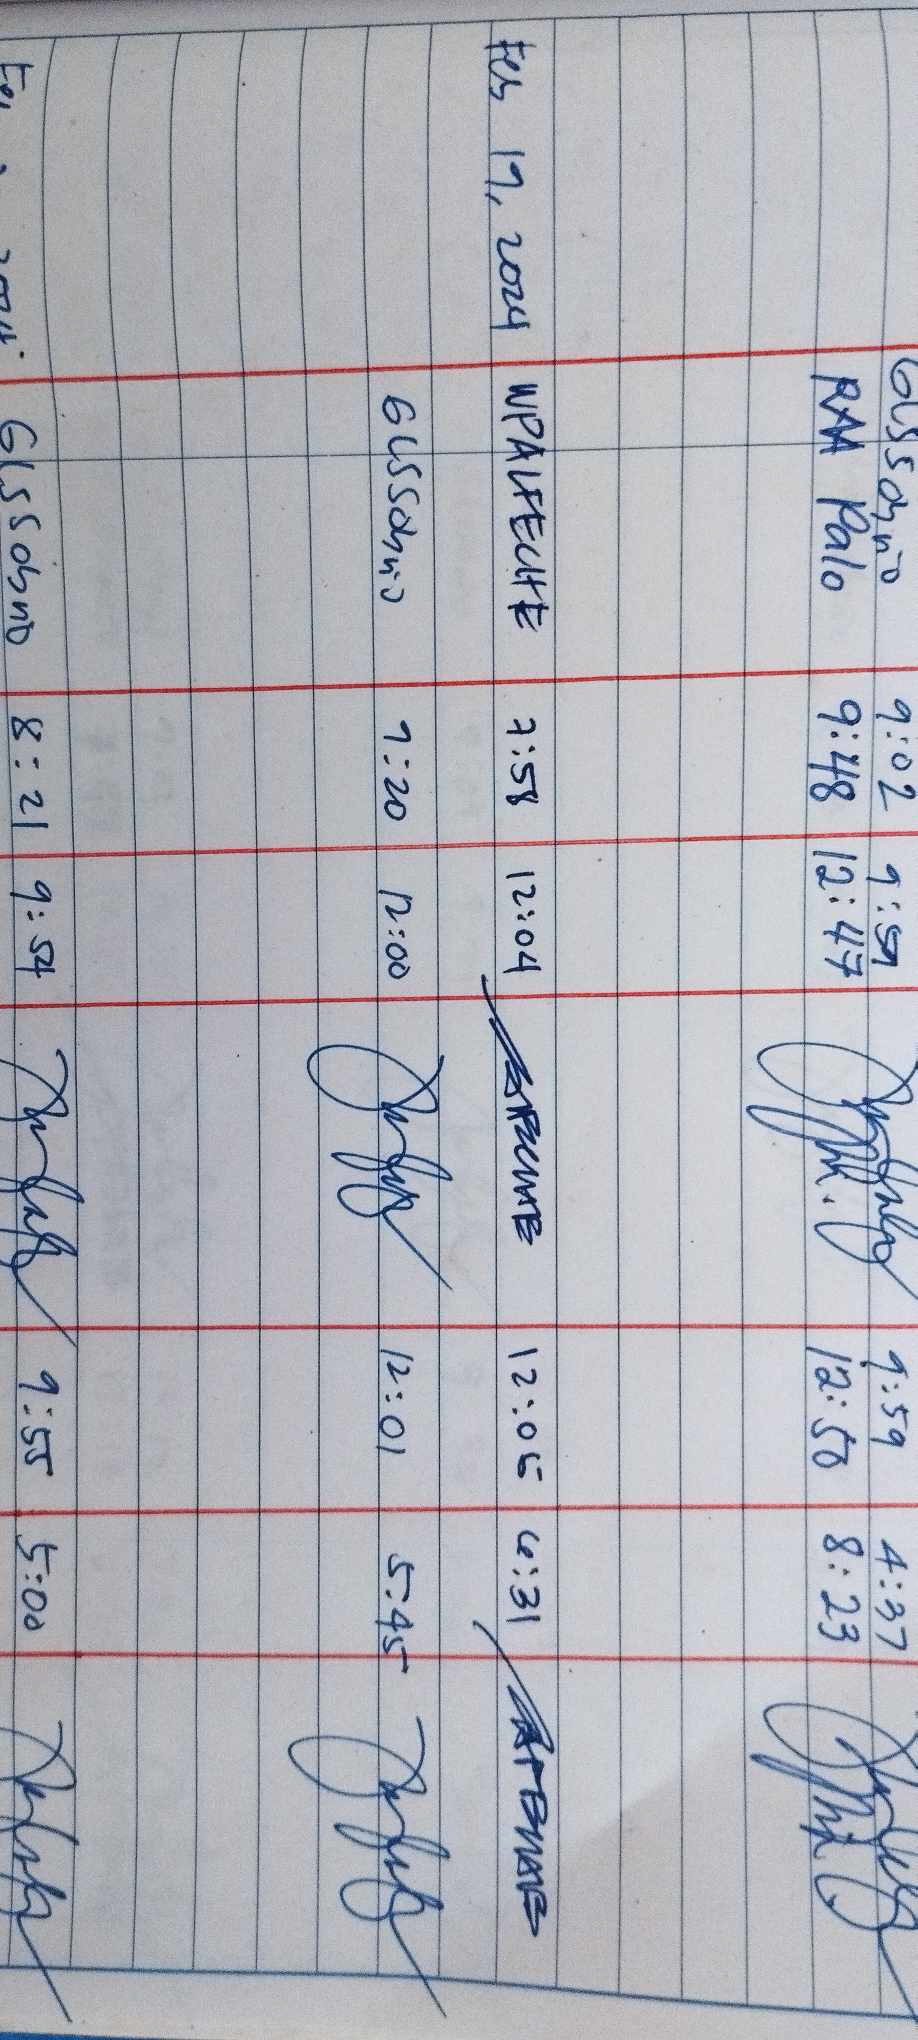 GLSSosnio 9:02 9:59 9:59 4:37
RAA Palo 9:48 12:47 12:50 8:23
Feb 19, 2024 WPALFECHE 7:58 12:04 12:05 6:31
GLSSosnio 9:20 12:00 12:01 5:45
2024 GLSSosnio 8:21 9:54 9:55 5:00